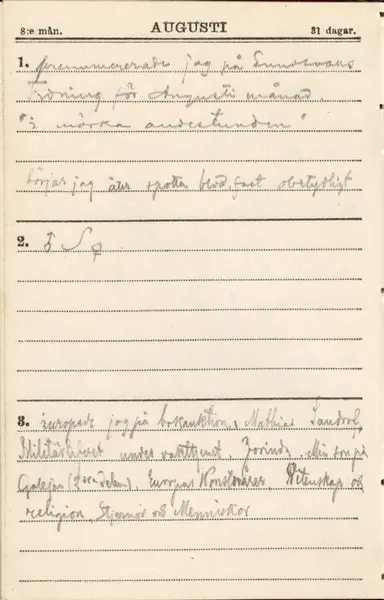 8:e mån. AUGUSTI 31 dagar.
1. prenumererade jag på Sundsvalls
Tidning för Augusti månad.
"i mörka andestunden"
börjar jag åter spotta blod, fast obetydligt
2.
3. jag på bokauktion, Mathias Sandorf,
Militärlifvet under vakttjenst, Min son på
Galejan (2 dra delen), Europas Konstnärer, Vetenskap och
religion, Stjernor och Menniskor